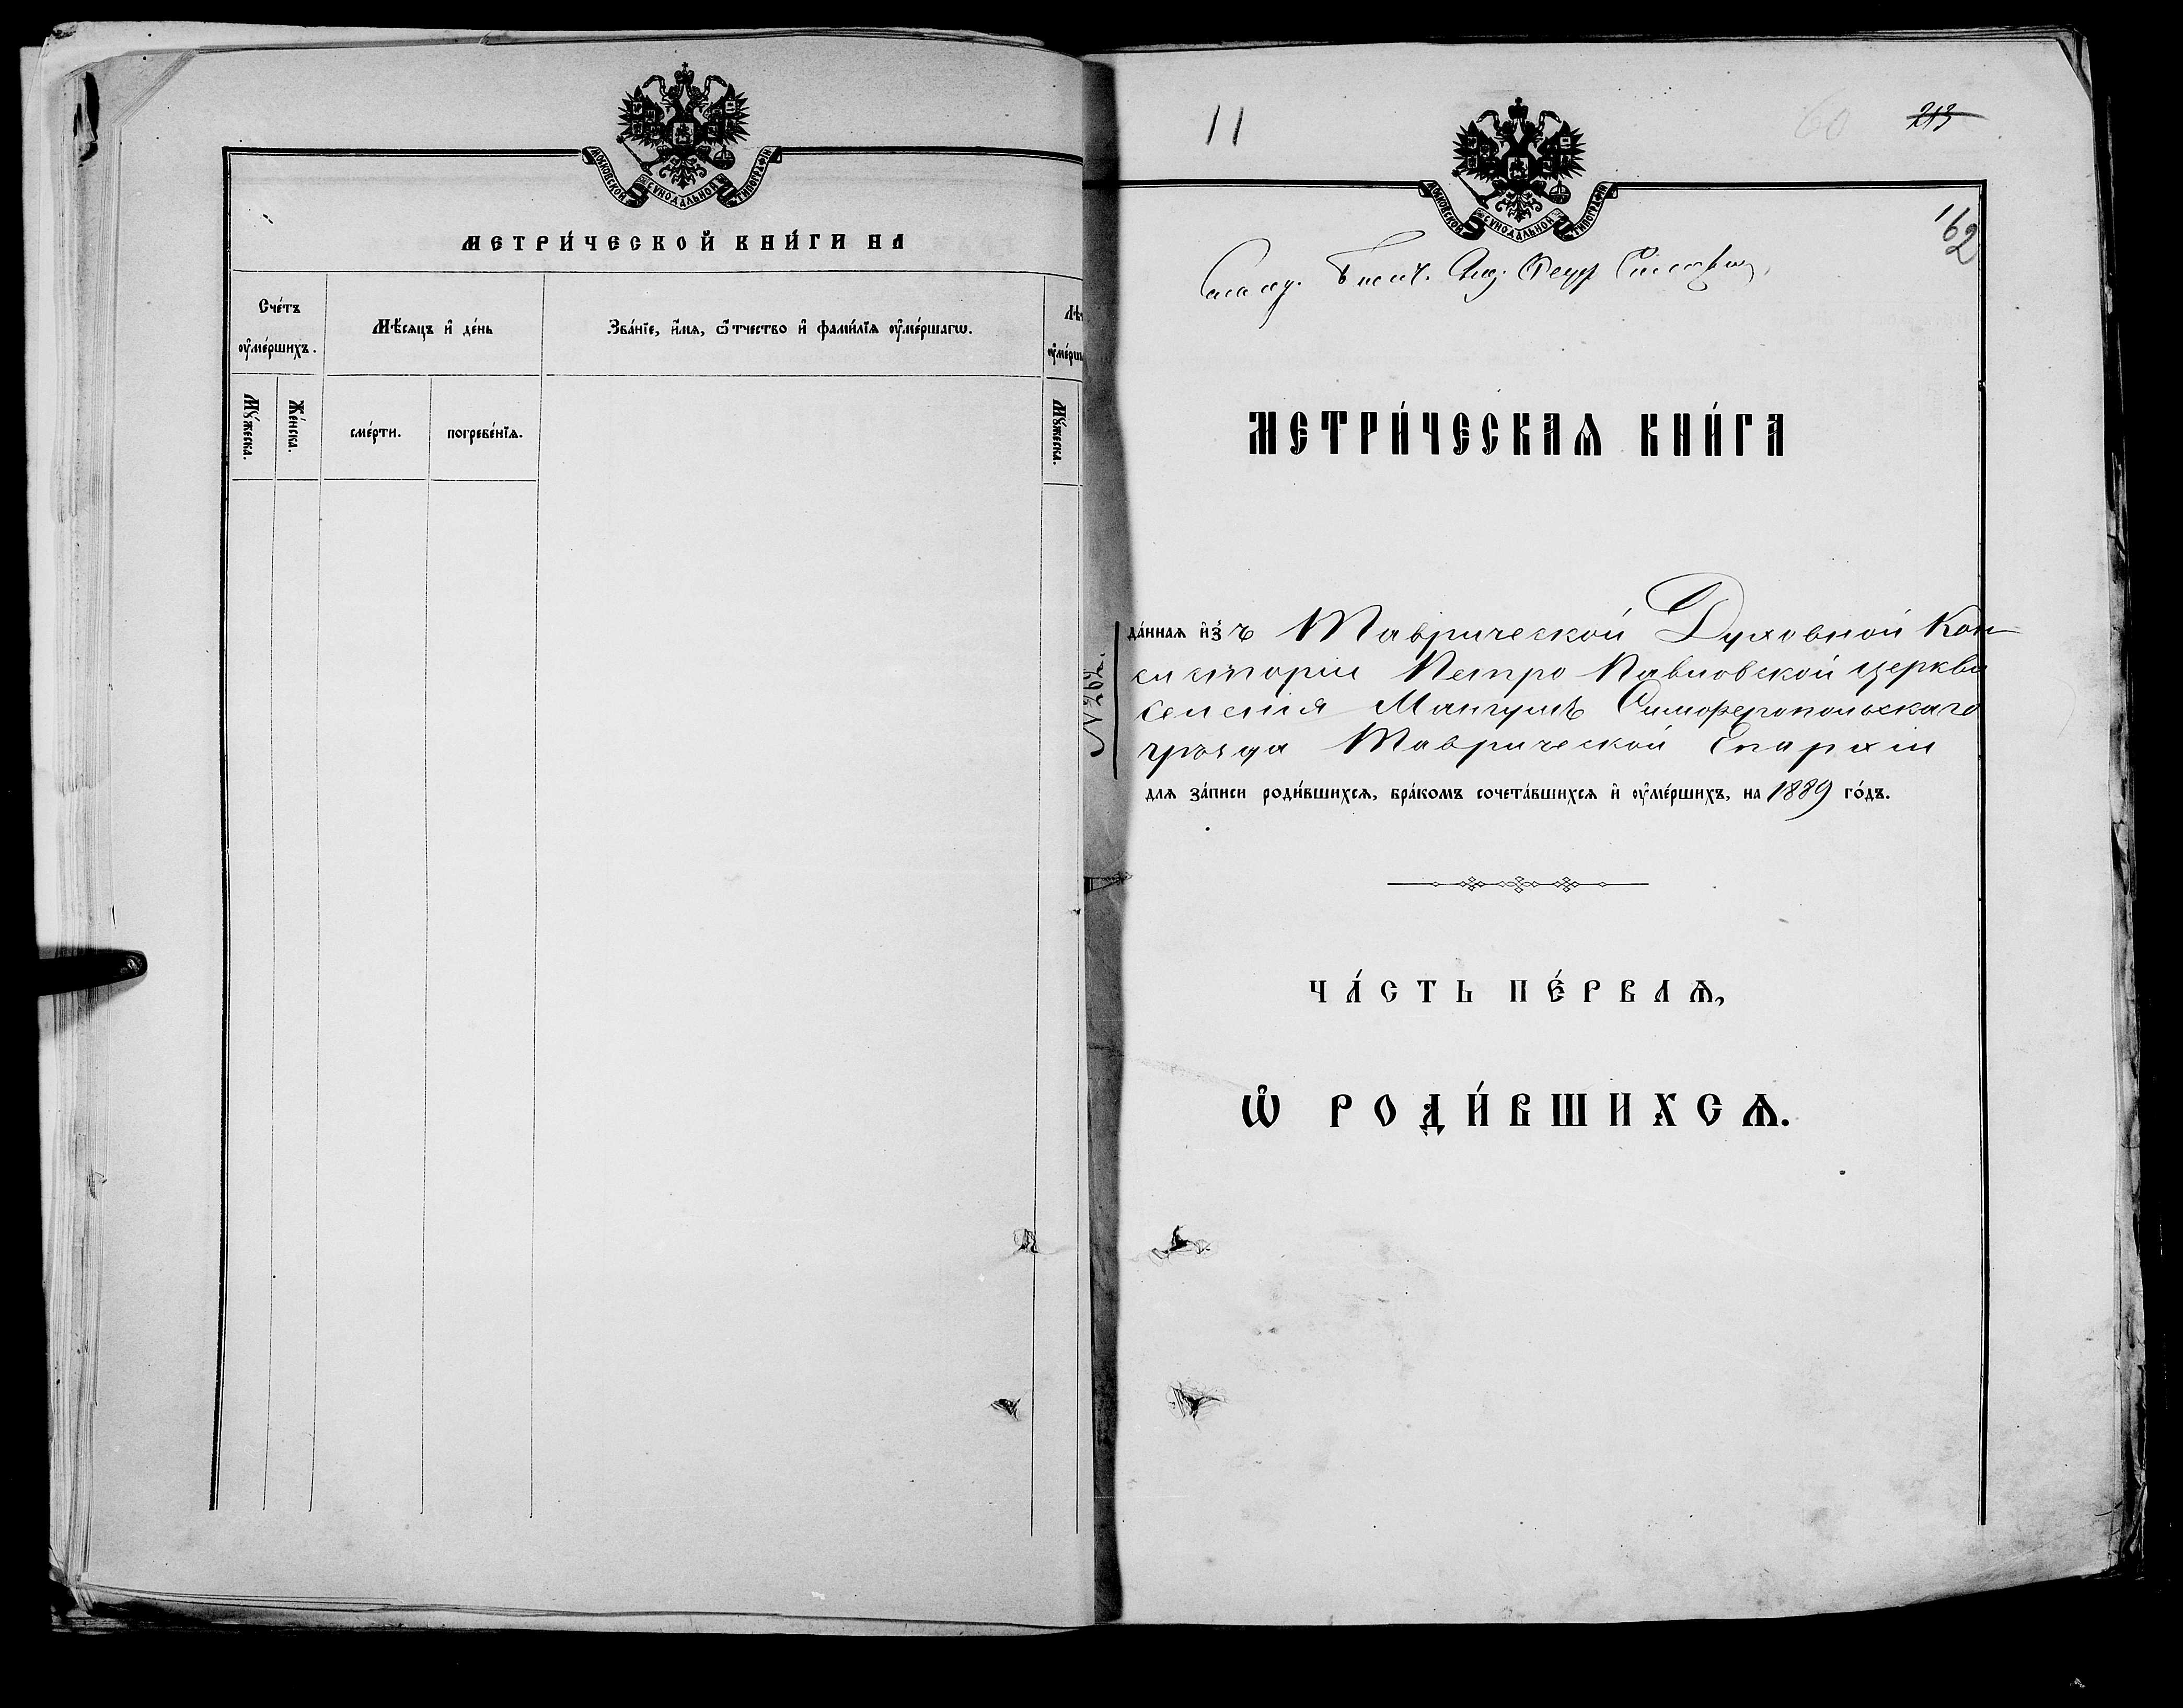 МОСКОВСКОЙ СУНОДАЛЬНОЙ ТИПОГРАФІИ
МЕТРИ́ЧЕСКОЙ КНИ́ГИ НА
Сче́тъ
ᲂу҆ме́ршихъ.
Мѣ́сяцъ и҆ де́нь
Зва́нїе, и҆́мѧ, ѻ҆́тчество и҆ фами́лїѧ ᲂу҆ме́ршагѡ.
Лѣ
ᲂу҆ме́рш
Мꙋ́жеска.
Же́нска.
сме́рти.
погребе́нїѧ.
Мꙋ́жеска.
11
60
213
162
МОСКОВСКОЙ СУНОДАЛЬНОЙ ТИПОГРАФІИ
МЕТРИ́ЧЕСКАѦ КНИ́ГА
№ 262.
да́ннаѧ и҆з̾ъ Таврической Духовной Кон
систоріи Петро Павловской церкви
селенія Мангушъ Симферопольскаго
уѣзда Таврической Епархіи
длѧ за́писи роди́вшихсѧ, бра́комъ сочета́вшихсѧ и҆ ᲂу҆ме́ршихъ, на 1889 го́дъ.
ЧА́СТЬ ПЕ́РВАѦ,
Ѡ҆ РОДИ́ВШИХСѦ.